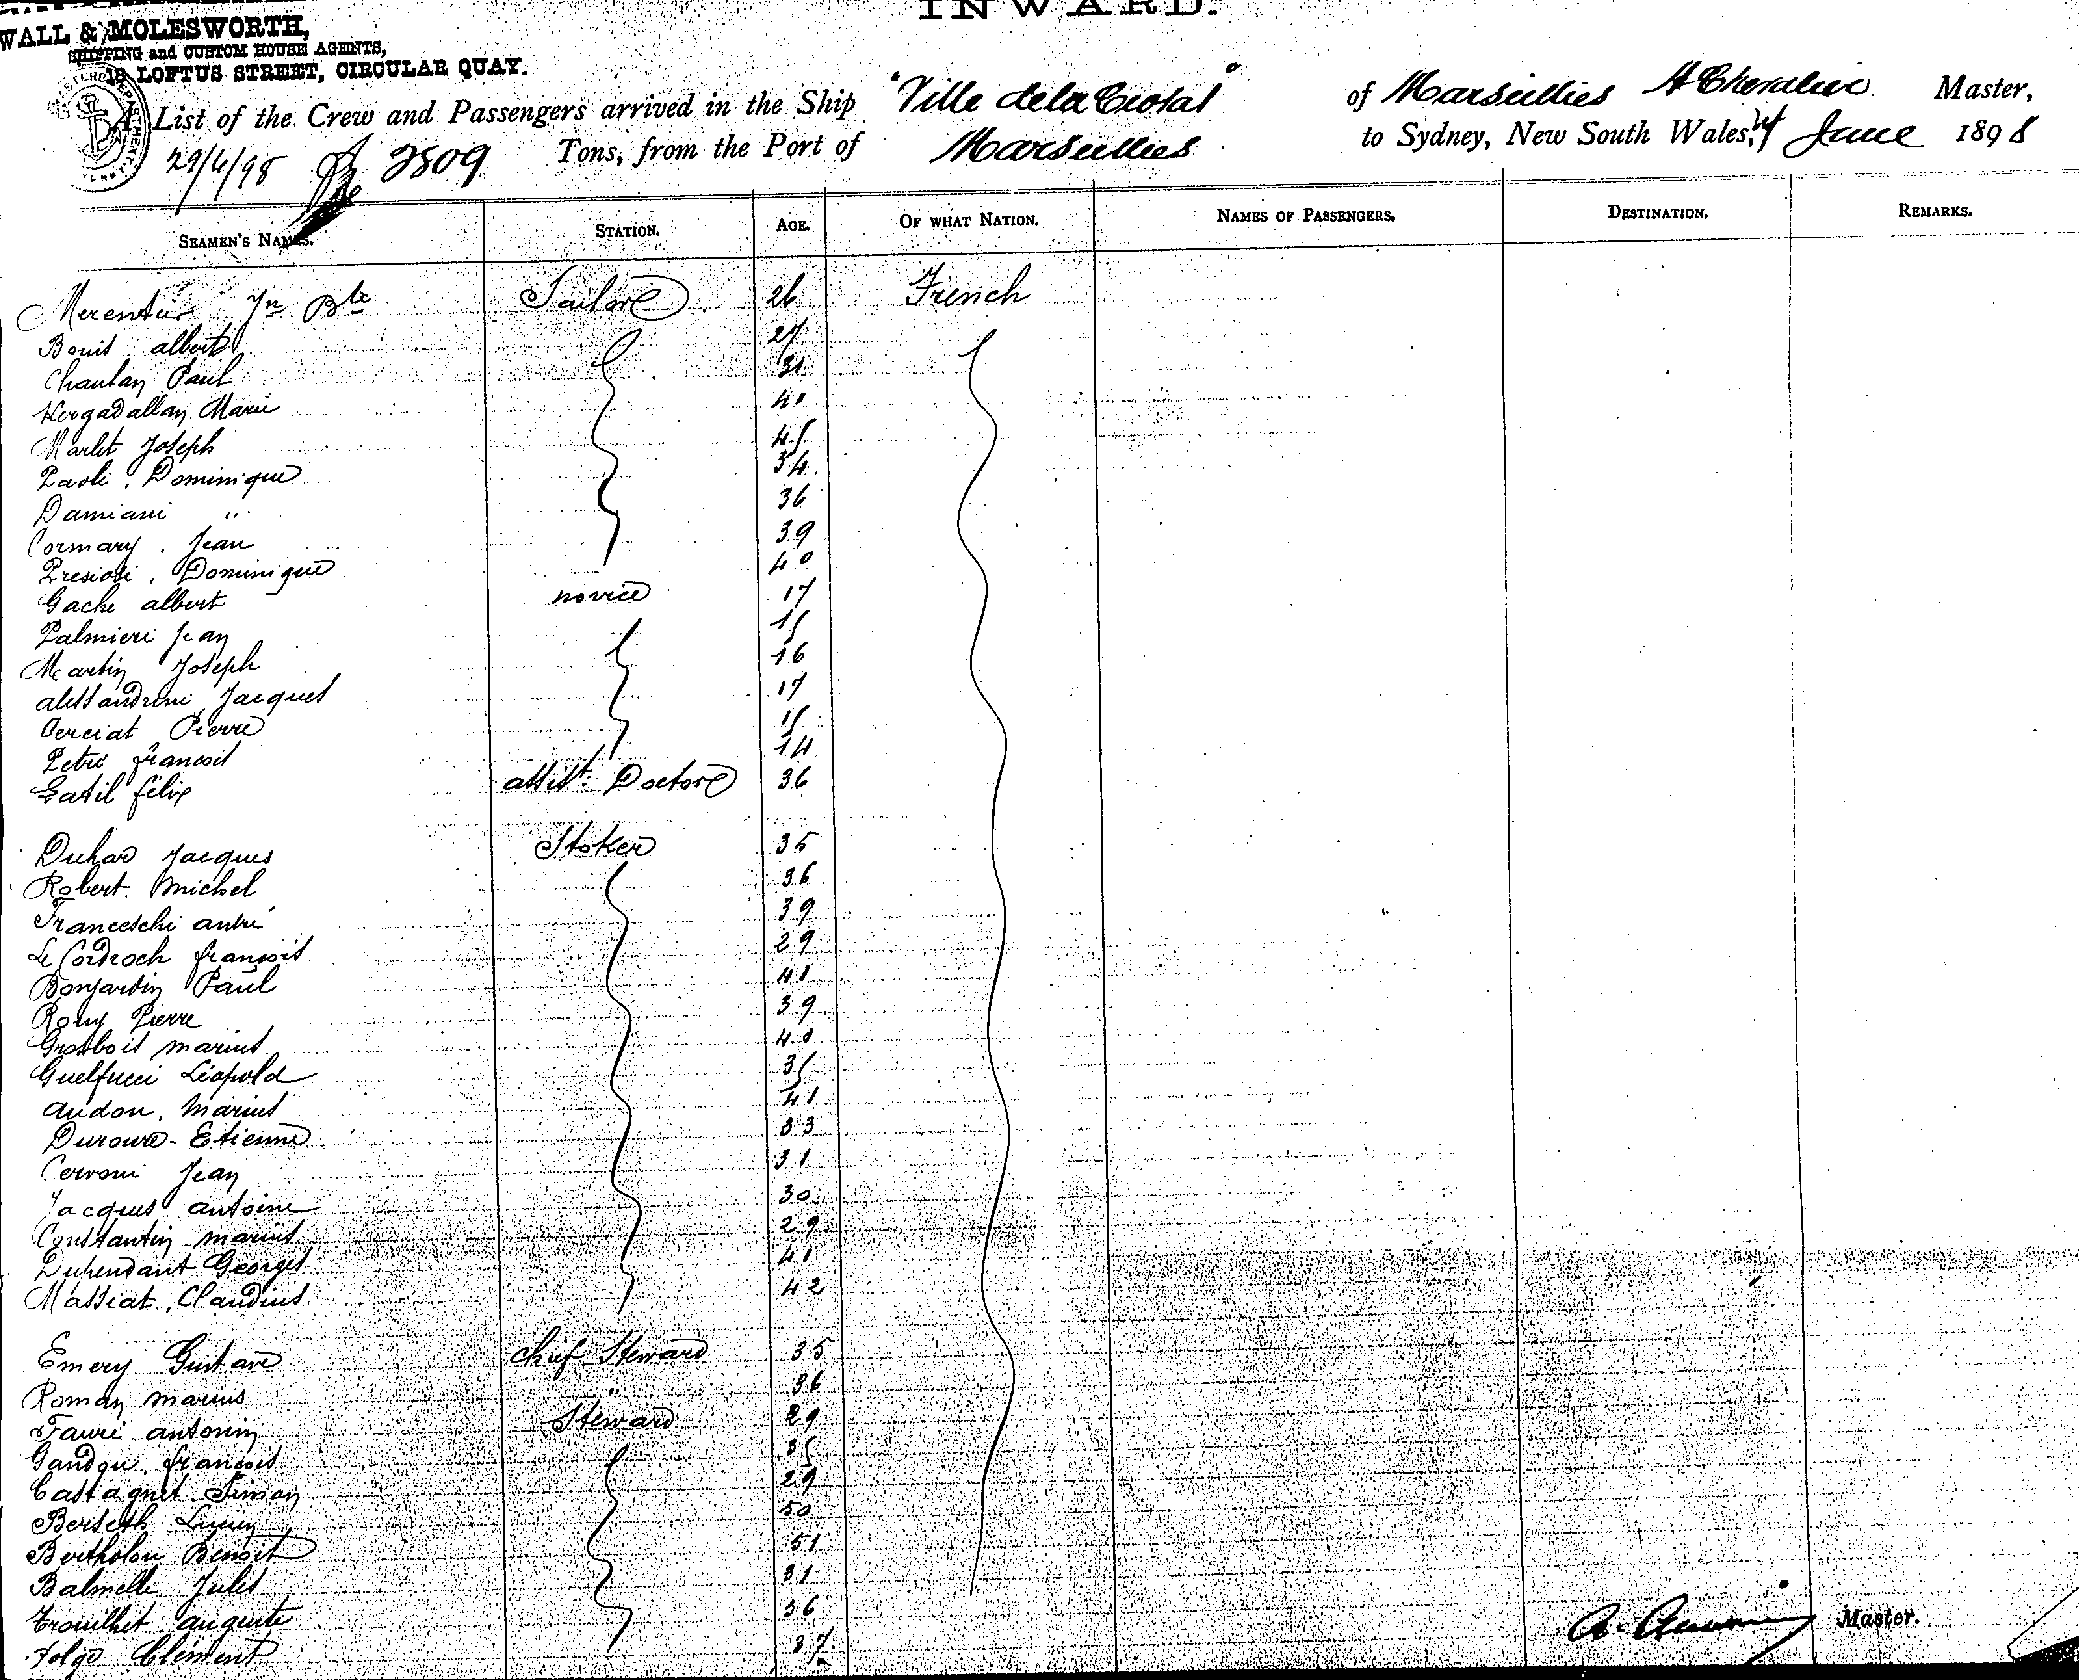 INWARD.
WALL & MOLESWORTH,
SHIPPING and CUSTOM HOUSE AGENTS,
18 LOFTUS STREET, CIRCULAR QUAY.
A List of the Crew and Passengers arrived in the Ship "Ville de la Ciotat" of Marseilles A Chevalier Master,
29/6/98 2509 Tons, from the Port of Marseilles to Sydney, New South Wales, June 1898
SEAMEN'S NAMES. STATION. AGE. OF WHAT NATION. NAMES OF PASSENGERS. DESTINATION. REMARKS.
Jn Bte Sailor 26 French
Bonis albert 27
Chaulan Paul 31
Kergadallan Marie 40
Marlet Joseph 45
Paoli, Dominique 34
Damiani " 36
Cormary, Jean 39
Presiosi, Dominique 40
Gache albert novice 17
Palmieri Jean 15
Martin Joseph 16
alessandrini Jacques 17
Pierre 15
Petri françois 14
felix assist. Doctor 36
Duhar Jacques Stoker 35
Robert Michel 36
Franceschi andré 39
Le Cordroch françois 29
Bonjardin Paul 41
Romy Pierre 39
Grosbois marius 40
Guelfucci Léopold 35
audon, marius 41
Duroure Etienne 33
Cervoni Jean 31
Jacques antoine 30
Constantin marius 29
Georges 41
Massiat, Claudius 42
Emery Gustave chief Steward 35
Roman marius " 36
Faure antonin Steward 29
françois 35
Castagnet Simon 29
50
Bertholon Benoit 51
Balmelle Jules 31
Trouillet auguste 36
Clément 37
Master.